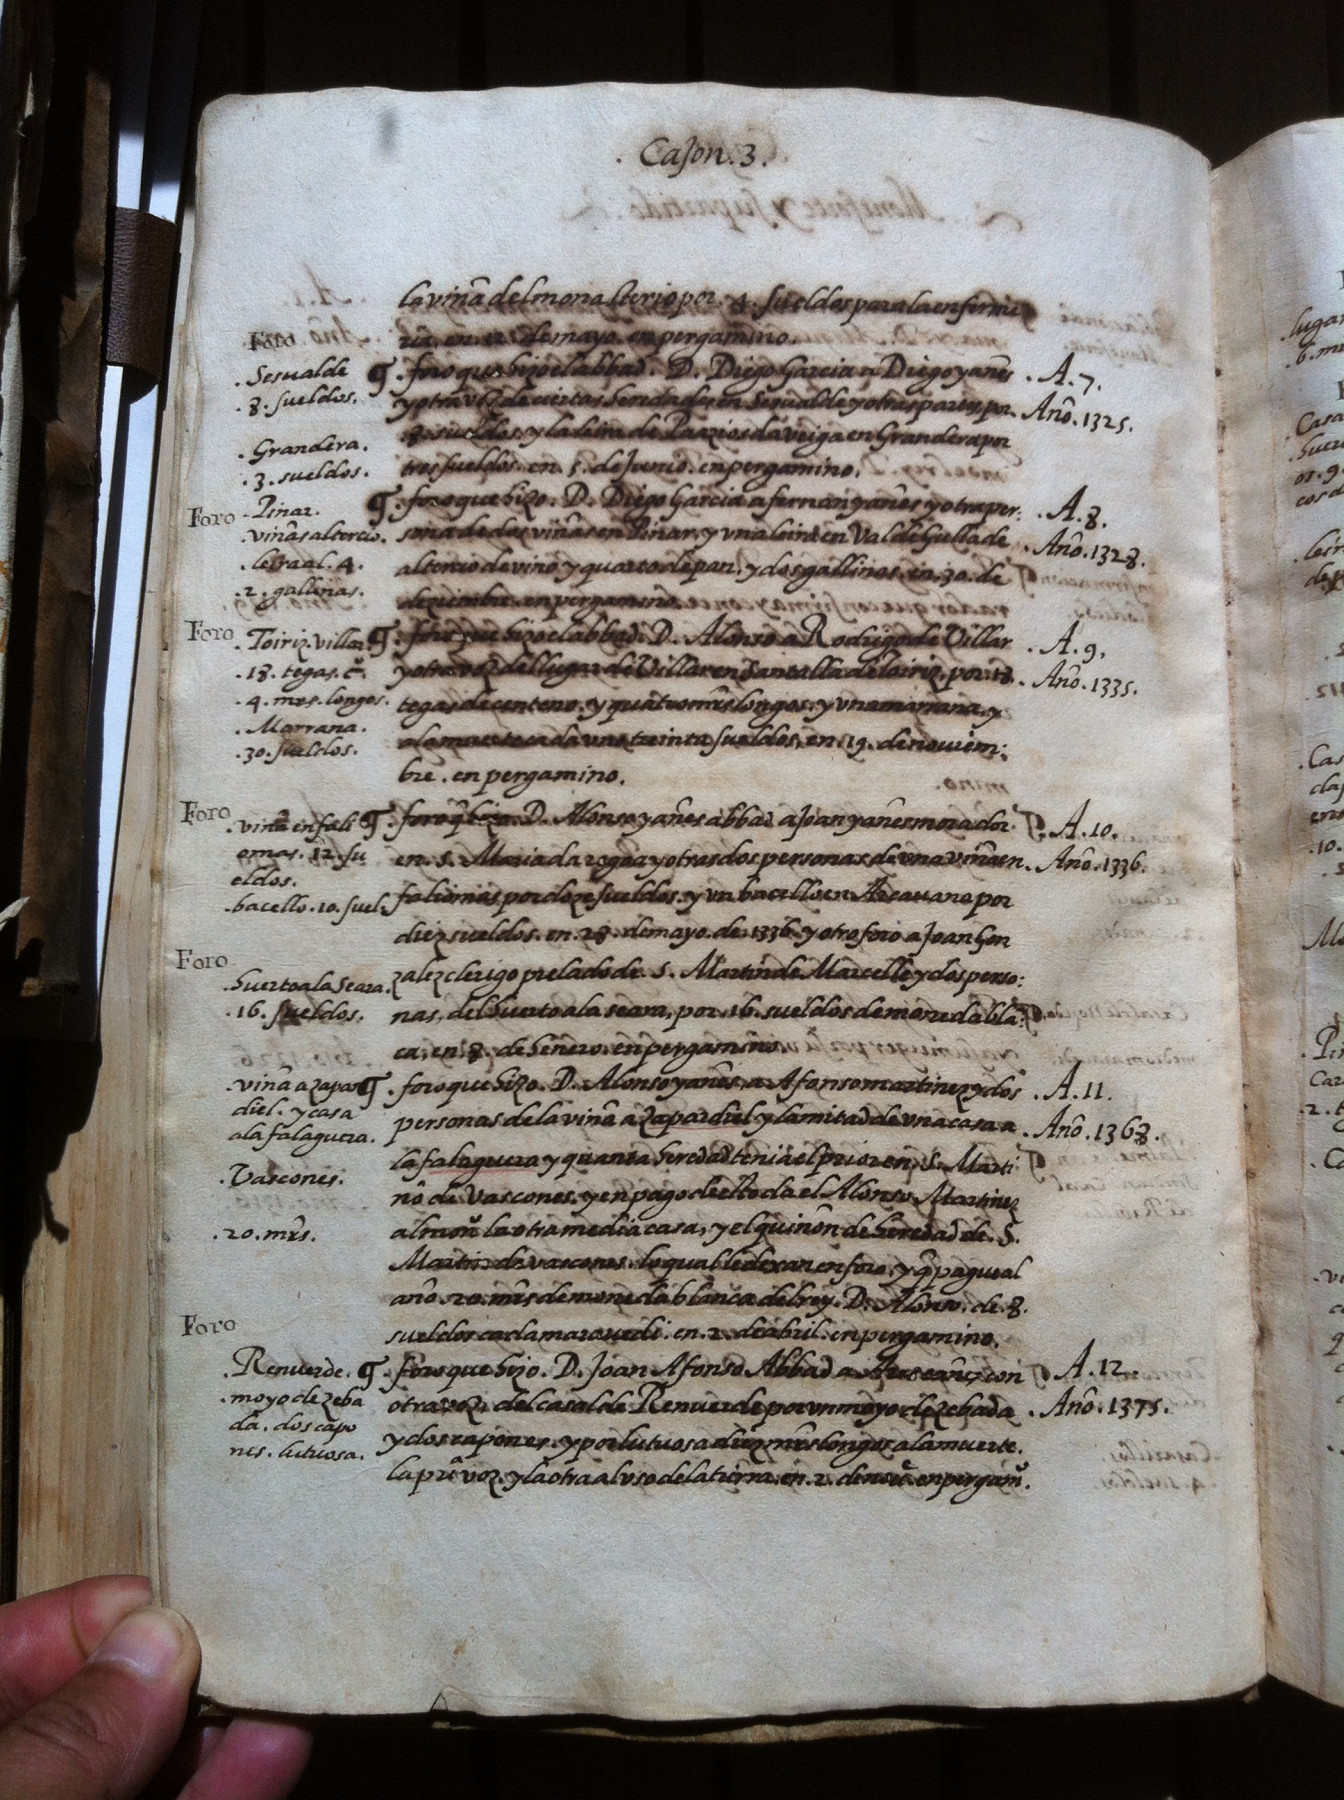 . Cajon. 3.
la viña del monasterio por. 4. sueldos para la enferme
ria. en. 12. de mayo. en pergamino.
Foro
. Sesualde
. 8. sueldos.
. Grandera.
. 3. sueldos.
. foro que hizo el abbad. D. Diego Garcia a Diego yañes
y otra voz de ciertas heredades en Sesualde y otras partes, por
. 8. sueldos. y la leira de Paazios da veiga en Grandera por
tres sueldos. en. 5. de Junio. en pergamino.
. A. 7.
. Año. 1325.
Foro
. Pinar.
. viñas al tercio.
. leira al. 4.
. 2. gallinas.
. foro que hizo. D. Diego Garcia a fernan yañes y otra per:
sona de dos viñas en Pinar. y vna leira en Val de
al tercio de vino y quarto de pan. y dos gallinas. en. 30. de
dezienbre. en pergamino.
. A. 8.
. Año. 1328.
Foro
. Toiriz. villar.
. 18. tegas. c.
. 4. mrs. longos.
. Marrana.
. 30. sueldos.
. foro que hizo el abbad. D. Alonso a Rodrigo de Villar
y otra voz del lugar de Villar en Santalla de loiriz, por. 18.
tegas de centeno. y quatro mrs longos. y vna marrana. y
a la muerte cada vno treinta sueldos, en. 19. de noviem:
bre. en pergamino.
. A. 9.
. Año. 1335.
Foro
. viña en fali
omas. 12. su
eldos.
. bacello. 10. suel.
. foro q̃ hizo. D. Alonso yañes abbad a Joan yañes morador
en. S. Maria da regoa y otras dos personas de vna viña en
faliomas por doze sueldos. y vn bacello en por
diez sueldos. en. 28. de mayo. de 1336. y otro foro a Joan Gon
. A. 10.
. Año. 1336.
Foro
. huerto a la Seara.
. 16. sueldos.
zalez clerigo prelado de. S. Martin de Marcelle y dos perso:
nas, del huerto a la seara, por. 16. sueldos de moneda blã:
ca, en. 8. de henero. en pergamino.
. viña azapar
diel. y casa
a la falaguera.
. Vascones.
. 20. mrs.
. foro que hizo. D. Alonso yañes, a Afonso martinez y dos
personas de la viña azapardiel y la mitad de vna casa a
la falaguera y quanta heredad tenia el prior en. S. Marti
ño de Vascones. y en pago de esto da el Alonso Martinez
al la otra media casa, y el quiñon de heredad de. S.
Martin de vascones. lo qual le dexan en foro. y q̃ pague al
año. 20. mrs de moneda blanca del rey. D. Alonso. de. 8.
sueldos cada marauedi. en. 2. de abril. en pergamino.
. A. 11.
. Año. 1368.
Foro
. Renuerde.
. moyo de zeba
da. dos capo
nes. lutuosa.
. foro que hizo. D. Joan Afonso Abbad a con
otra voz. del casal de Renuerde por vn moyo de zebada
y dos capones. y por lutuosa diez mrs longos a la muerte.
la prª voz. y la otra al vso de la tierra. en. 2. de nouẽ. en pergamº.
. A. 12.
. Año. 1375.